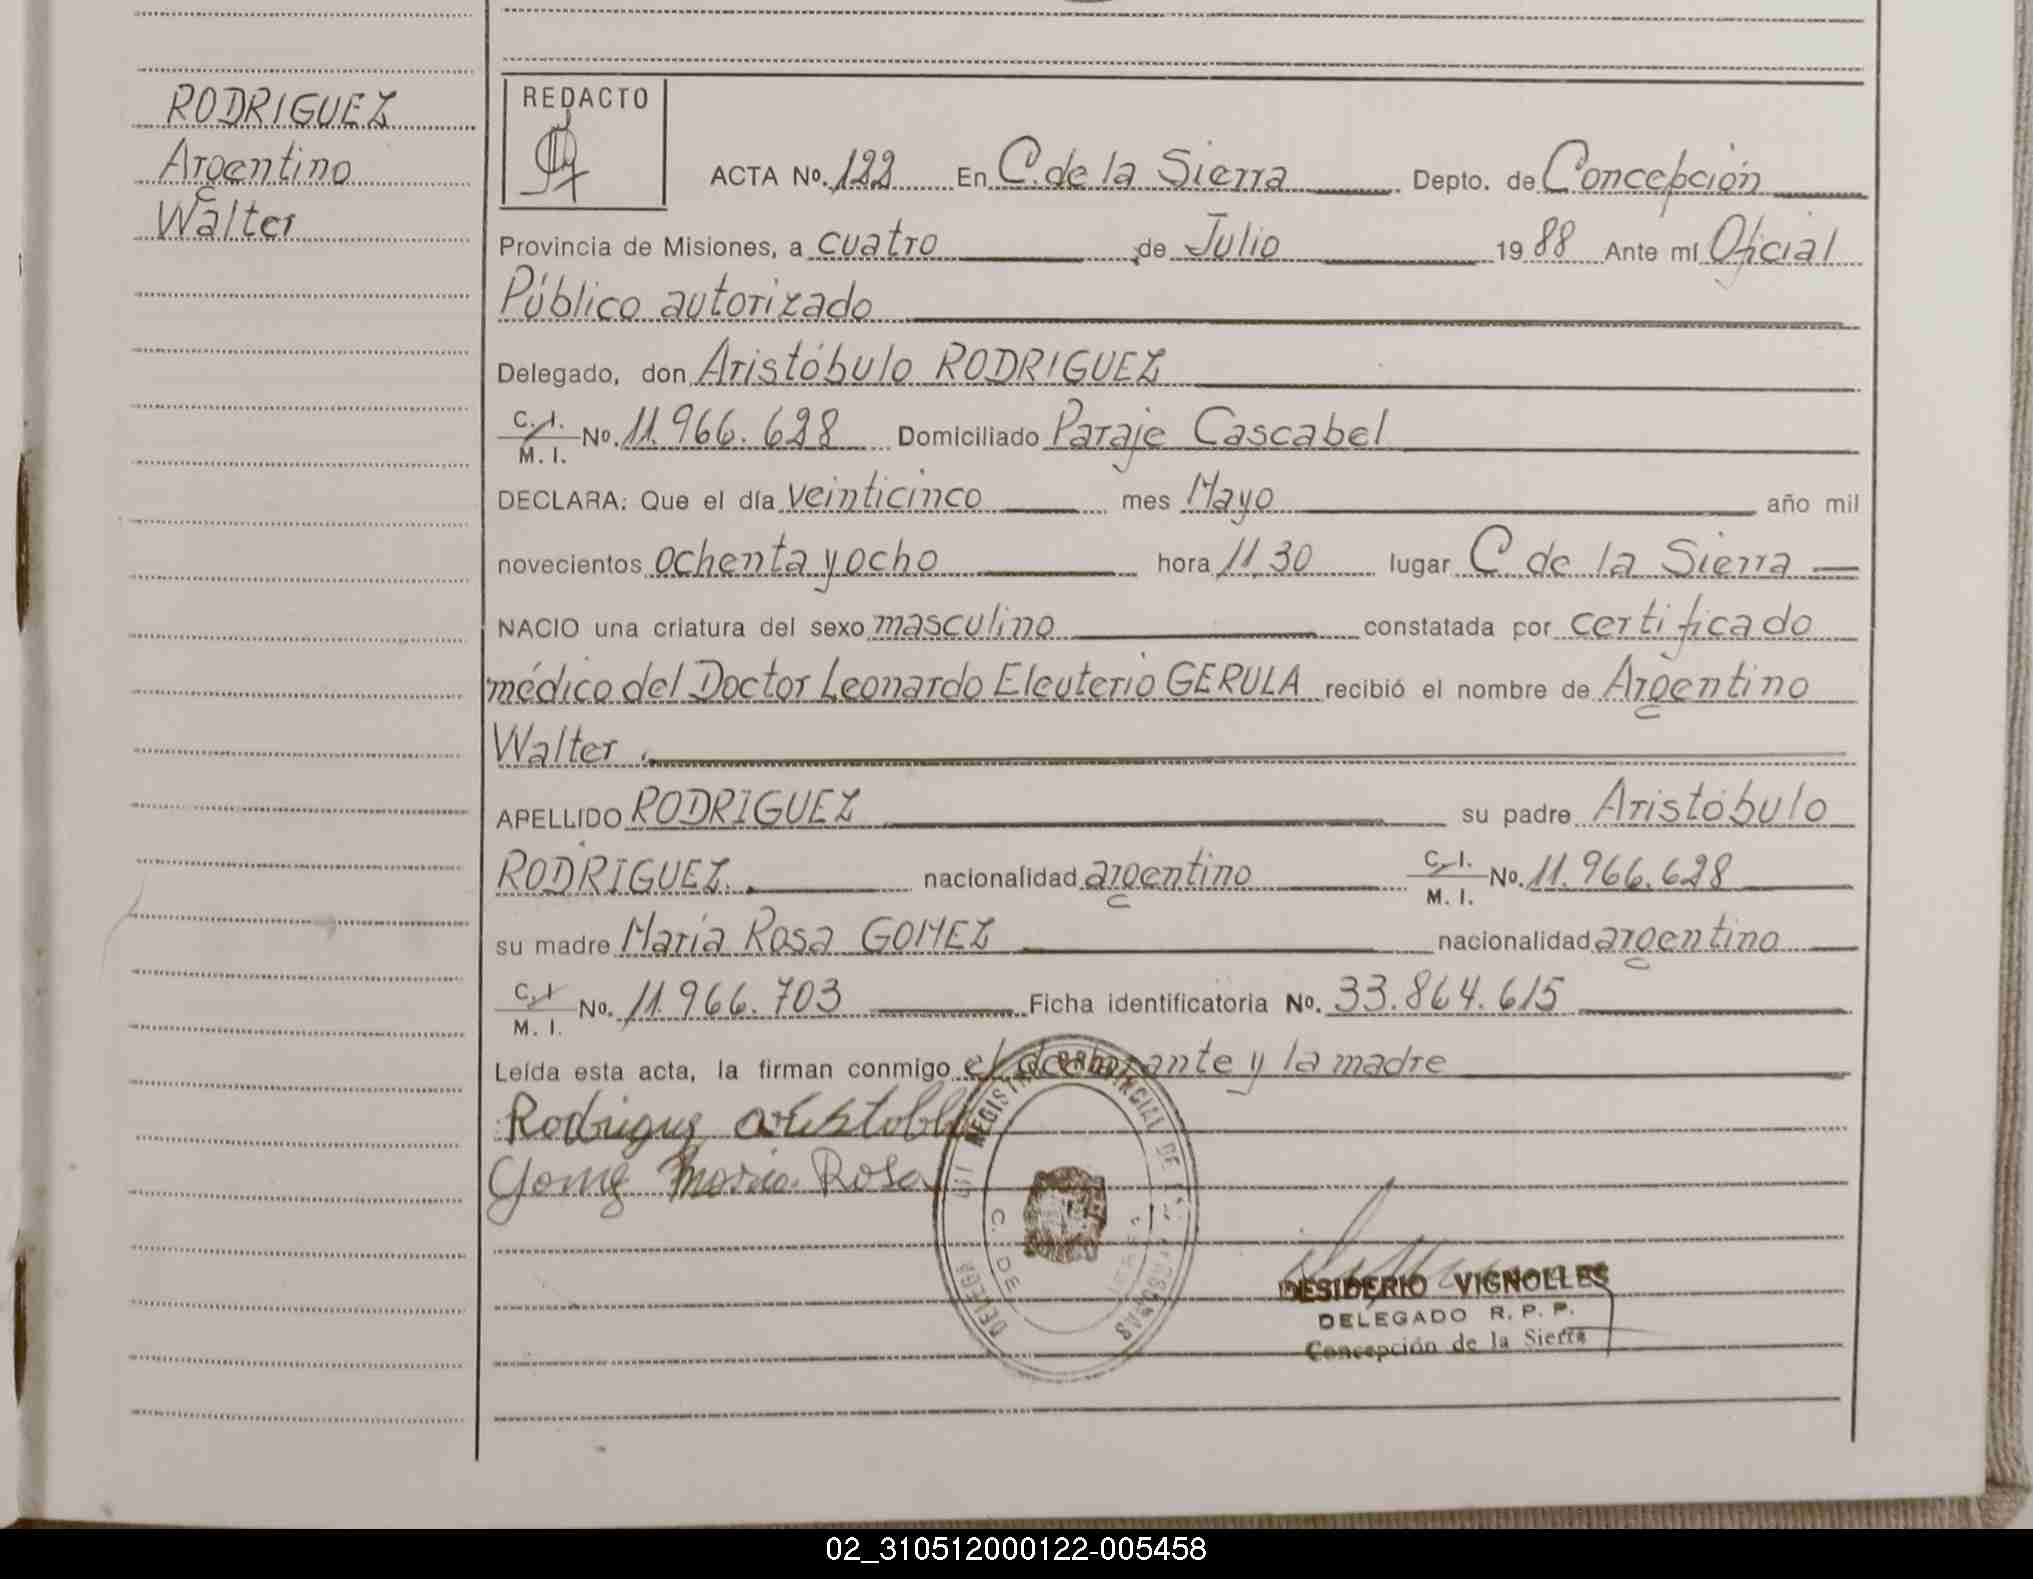 RODRIGUEZ
Argentino
Walter
REDACTO
ACTA No. 122 En C. de la Sierra Depto. de Concepción
Provincia de Misiones, a cuatro de Julio 1988 Ante mí Oficial
Público autorizado
Delegado, don Aristóbulo RODRIGUEZ
C. I.
M. I. No. 11.966.628 Domiciliado Paraje Cascabel
DECLARA: Que el día veinticinco mes Mayo año mil
novecientos ochenta y ocho hora 11,30 lugar C de la Sierra
NACIO una criatura del sexo masculino constatada por certificado
médico del Doctor Leonardo Eleuterio GERULA recibió el nombre de Argentino
Walter.
APELLIDO RODRIGUEZ su padre Aristóbulo
RODRIGUEZ. nacionalidad argentino C. I.
M. I. No. 11.966.628
su madre María Rosa GOMEZ nacionalidad argentino
C. I.
M. I. No. 11.966.703 Ficha identificatoria No. 33.864.615
Leída esta acta, la firman conmigo el declarante y la madre
Rodriguez
Gomez Maria Rosa
REGISTRO PROVINCIAL DE
MISIONES
C. DE
DESIDERIO VIGNOLLES
DELEGADO R. P. P.
Concepción de la Sierra
02_310512000122-005458